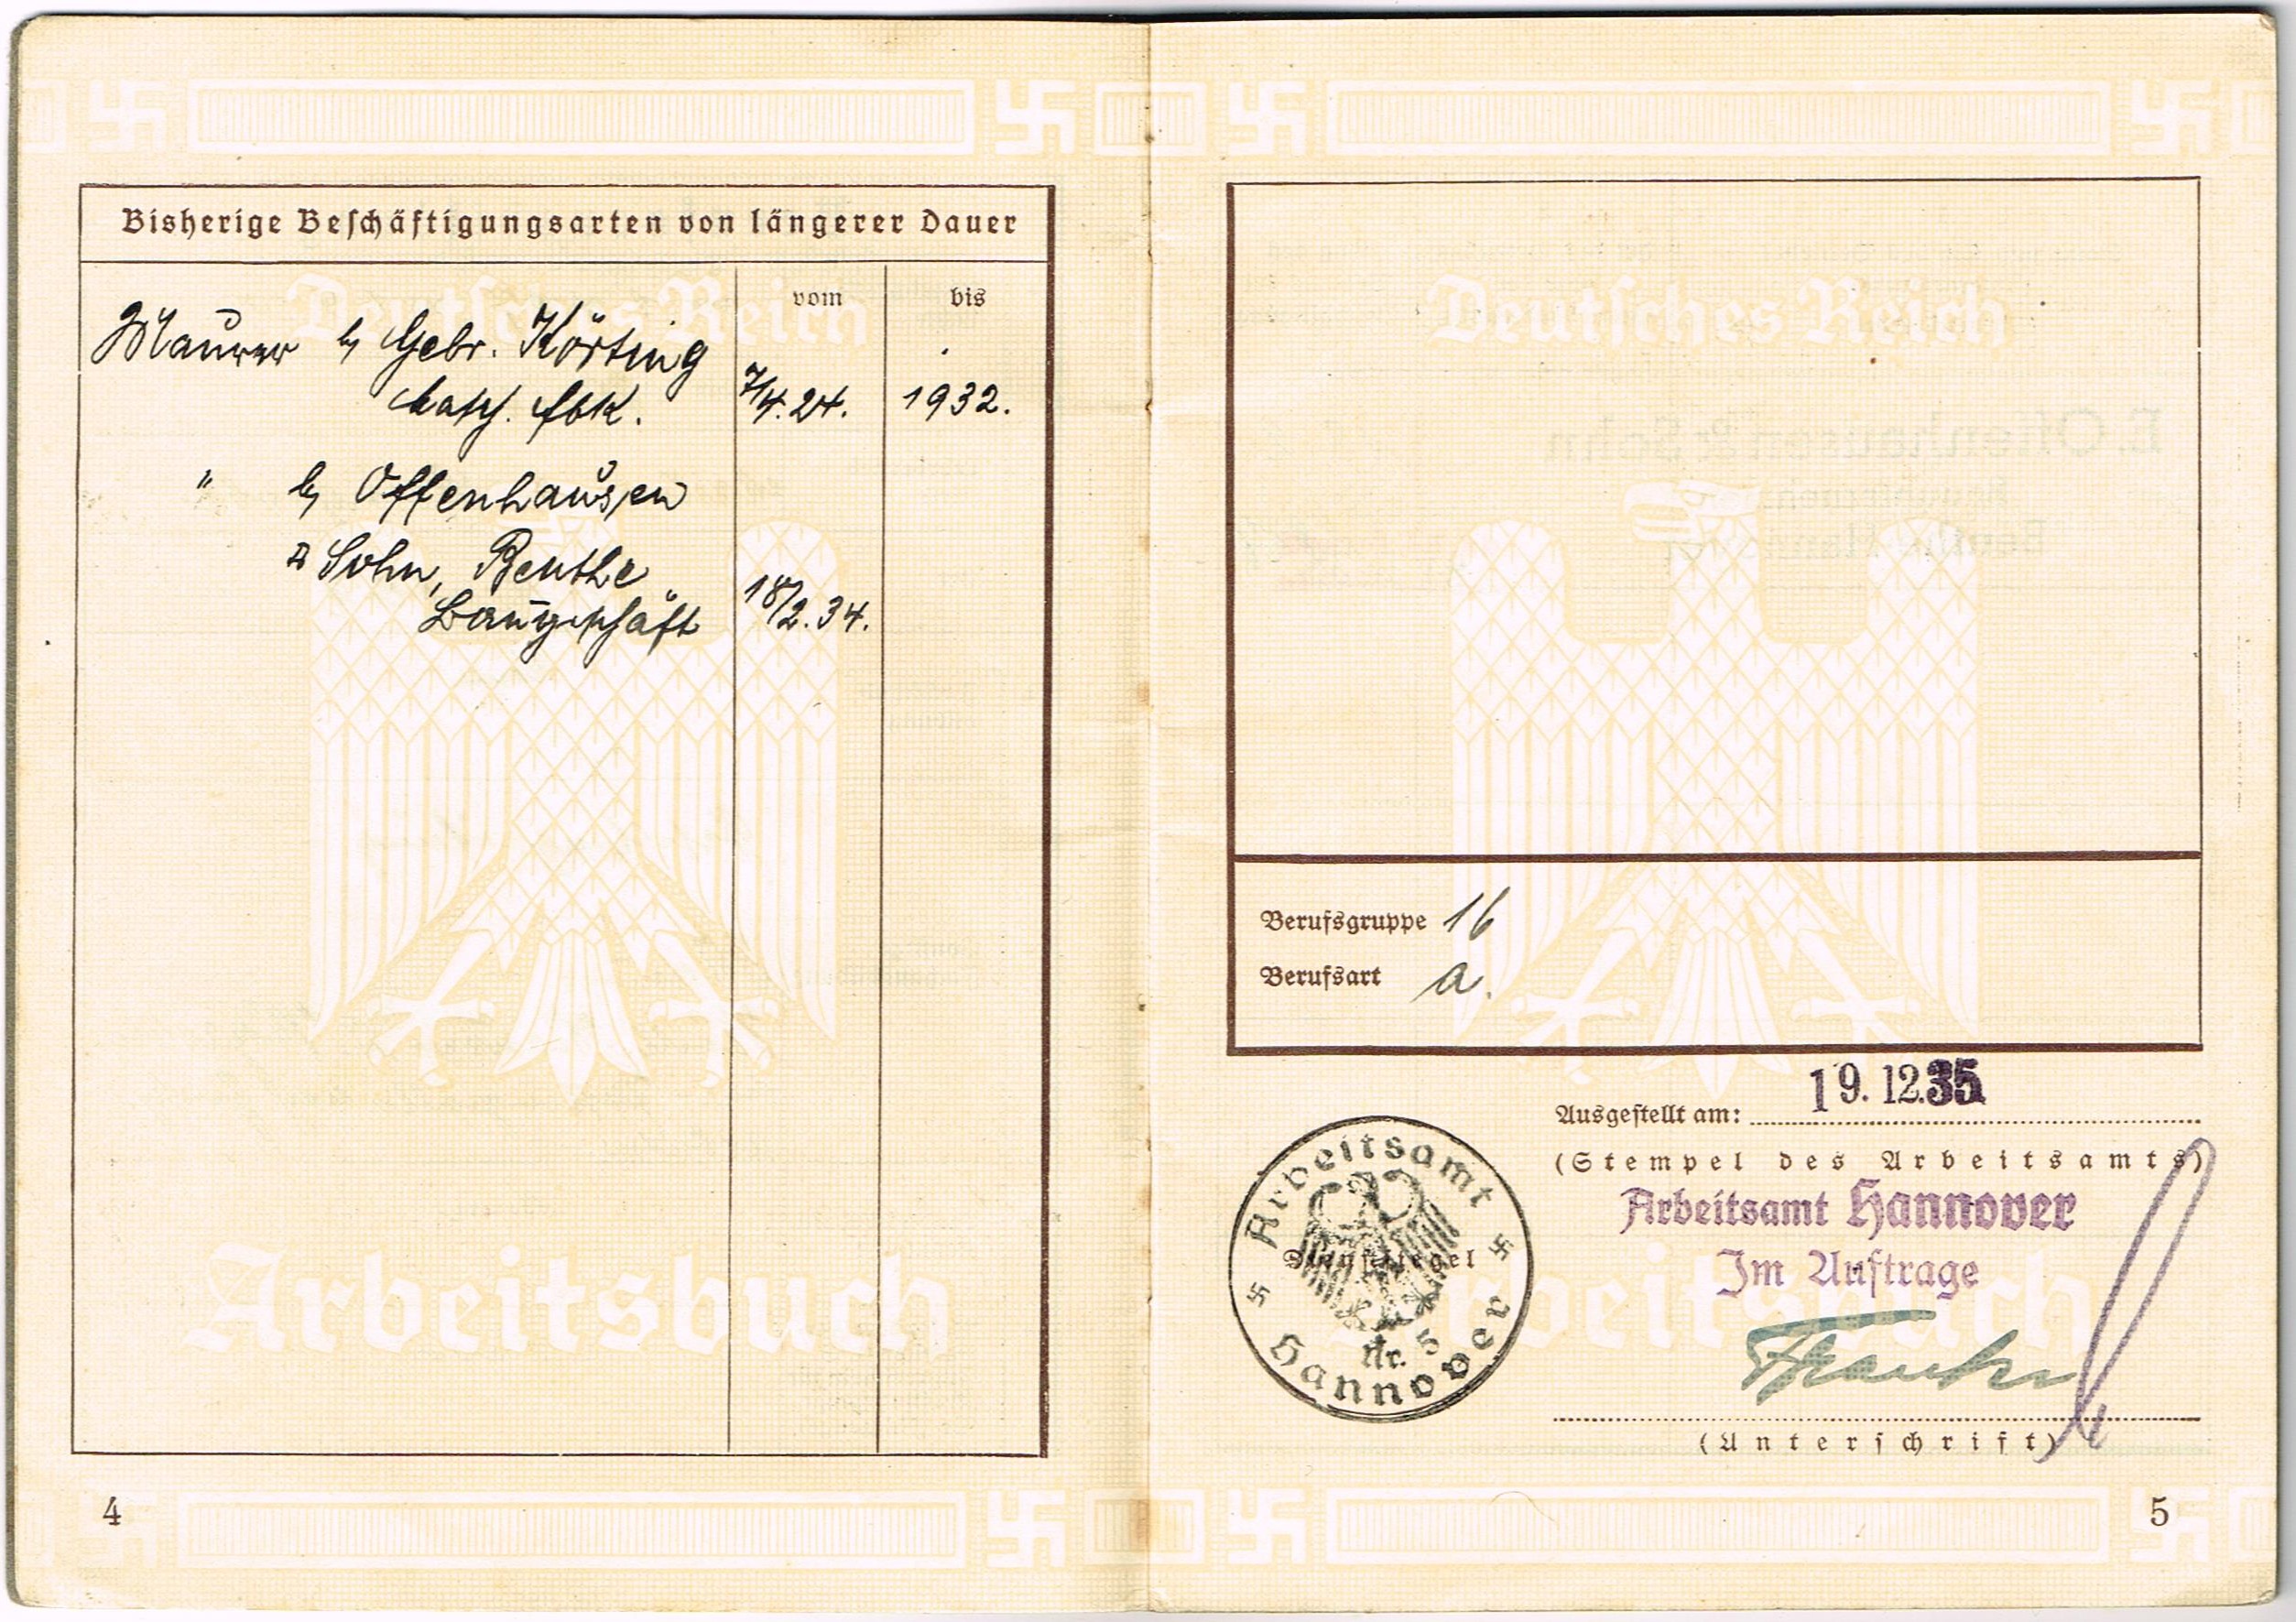 Bisherige Beschäftigungsarten von längerer Dauer
vom
bis
Maurer b/ Gebr. Körting
Masch. fbk.
7/4.24.
1932.
" b/ Offenhausen
& Sohn, Benthe
Baugeschäft
18/2.34.
Deutsches Reich
Arbeitsbuch
4
Deutsches Reich
Berufsgruppe 16
Berufsart a.
Ausgestellt am: 19.12.35
(Stempel des Arbeitsamts)
Arbeitsamt Hannover
Im Auftrage
(Unterschrift)
Arbeitsamt
Dienstsiegel
Nr. 5
Hannover
Arbeitsbuch
5